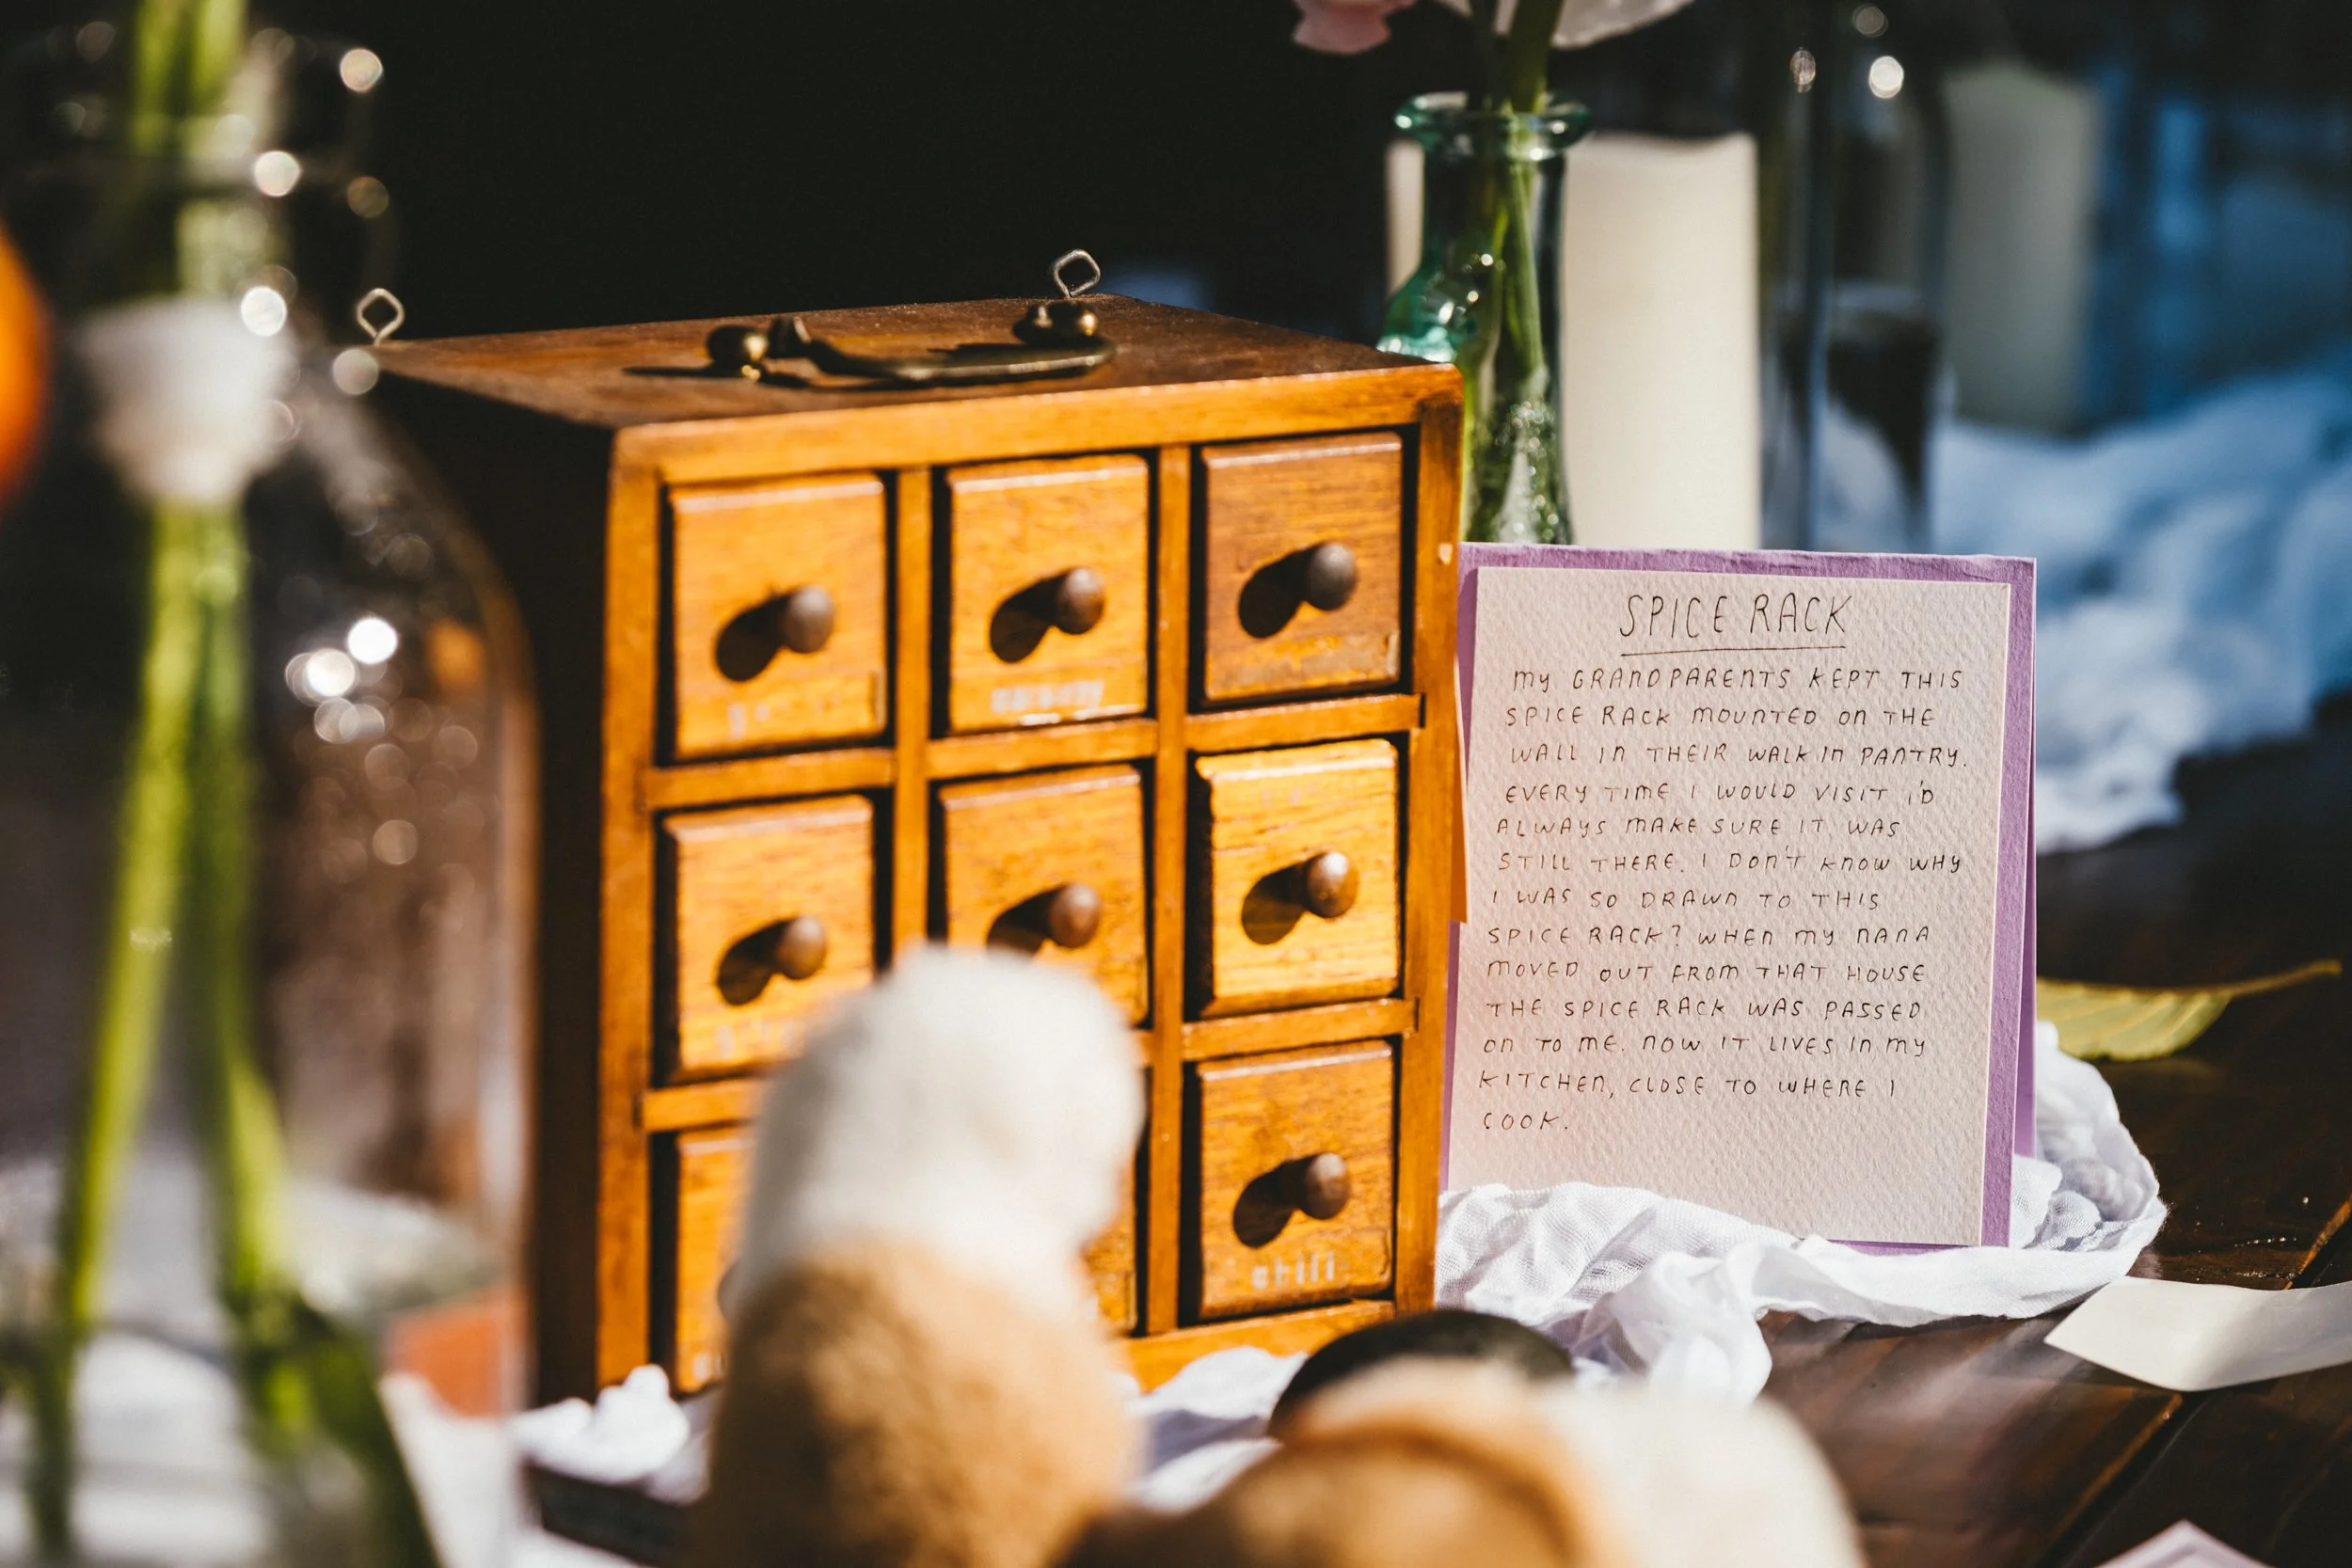 chili
SPICE RACK
MY GRANDPARENTS KEPT THIS
SPICE RACK MOUNTED ON THE
WALL IN THEIR WALK IN PANTRY.
EVERY TIME I WOULD VISIT I'D
ALWAYS MAKE SURE IT WAS
STILL THERE. I DON'T KNOW WHY
I WAS SO DRAWN TO THIS
SPICE RACK? WHEN MY NANA
MOVED OUT FROM THAT HOUSE
THE SPICE RACK WAS PASSED
ON TO ME. NOW IT LIVES IN MY
KITCHEN, CLOSE TO WHERE I
COOK.